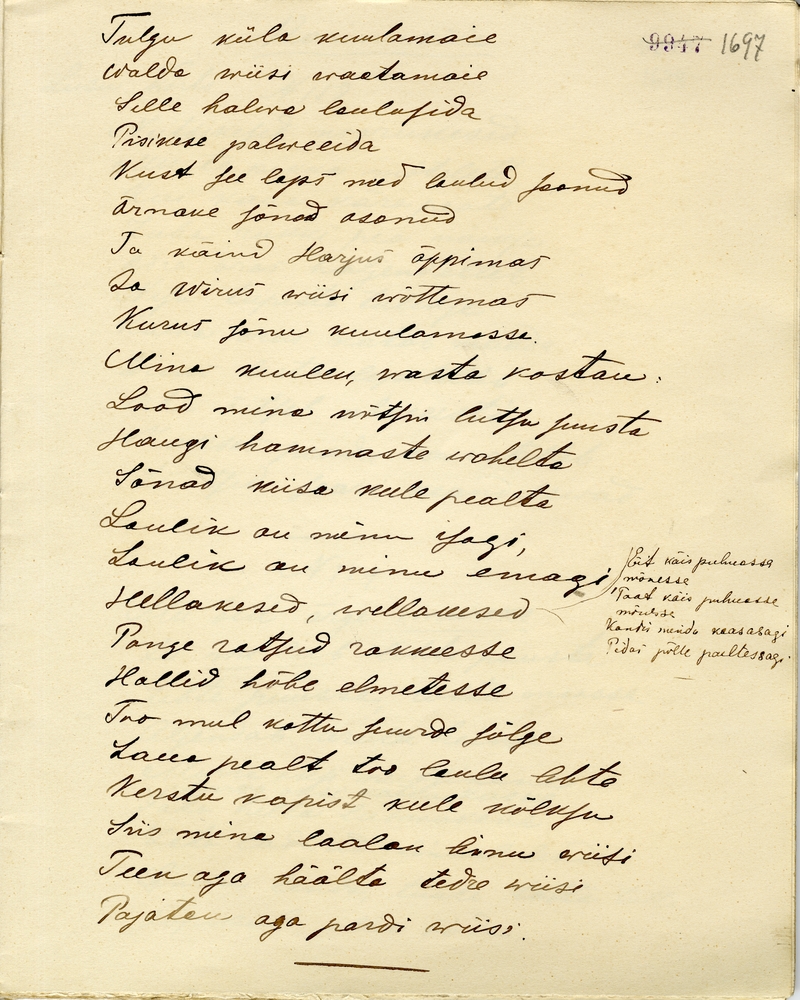 9947 1697
Tulgu küla kuulamaie
Walda wiisi waatamaie
Selle halwa laulusida
Pisikese palweeida
Kust see laps need laulud saanud
Ärnane sõnad osanud
Ta käind Harjus õppimas
Ja Wirus wiisi wõttemas
Kurus sõnu kuulamassa.
Mina kuulen, wasta kostan:
Lood mina nõtsin lutsu suusta
Haugi hammaste wahelta
Sõnad kiisa kule pealta
Laulik on minu isagi,
Laulik on minu emagi,
Eit käis puhuassa
mõnessa
Taat käis puhuassa
mõnessa
Kandis meida kaasasagi
Pidas põlle paeltessagi.
Hellakesed, wellakesed
Pange ratsud rakkeesse
Hallid hõbe elmetesse
Too mul kottu suurde sõlge
Laua pealt too laulu lehte
Kerstu kapist kule kõlksu
Siis mina laalan linnu wiisi
Teen aga häälta tedre wiisi
Pajatan aga pardi wiisi.